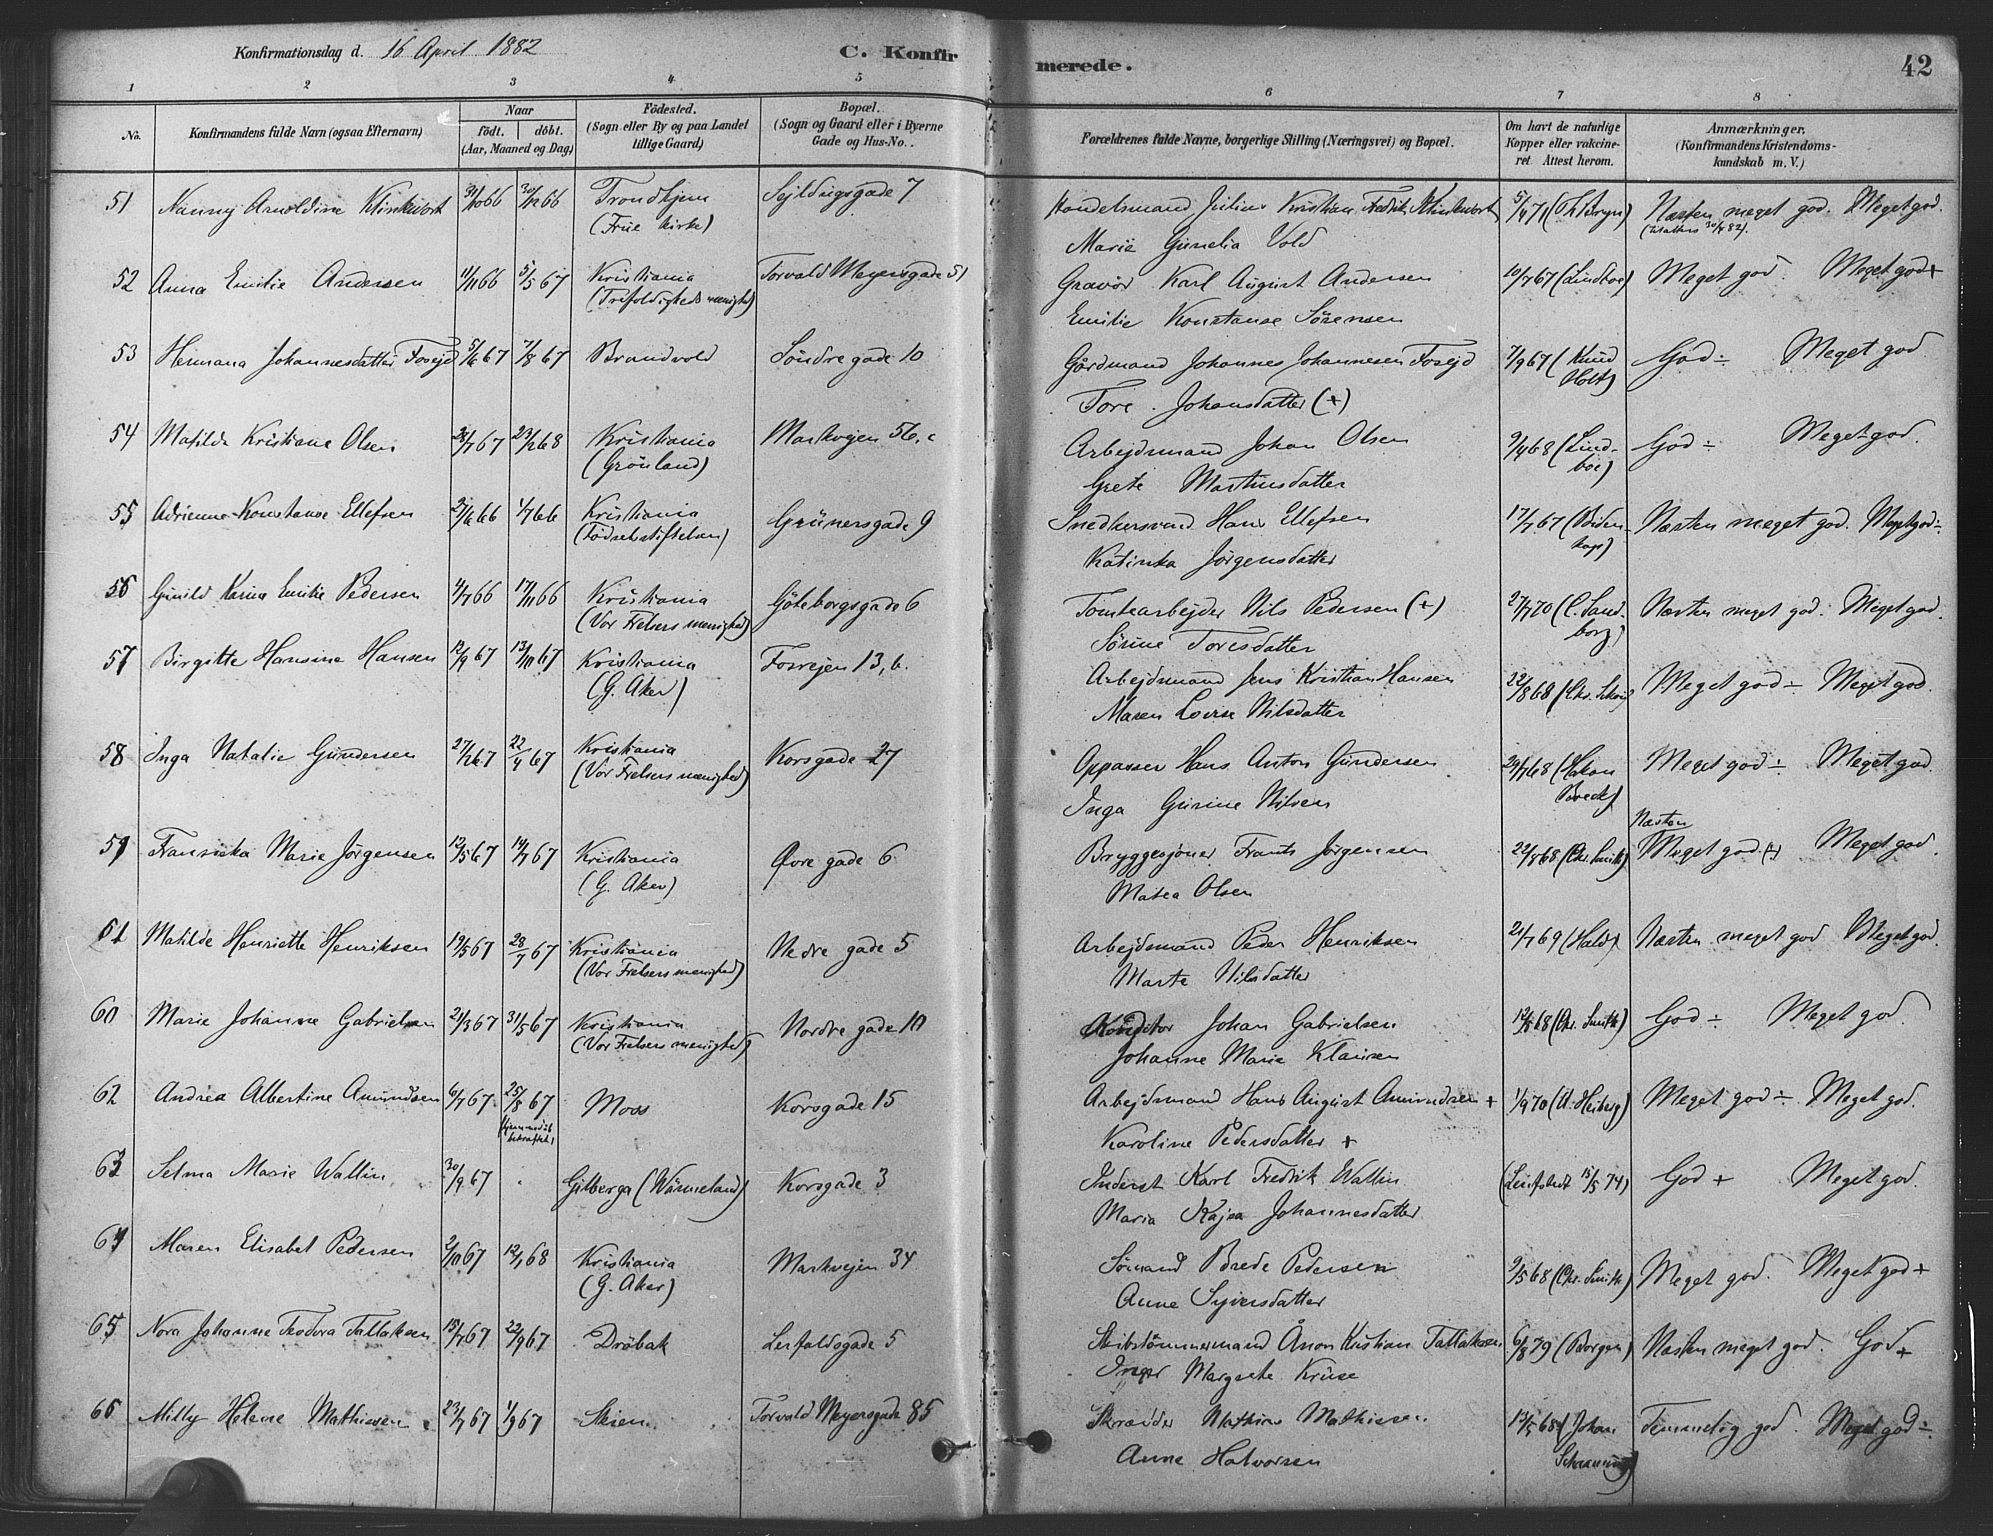 Konfirmationsdag d. 16 April 1882 C. Konfirmerede. 42
1 2 3 4 5 6 7 8
No. Konfirmandens fulde Navn (ogsaa Efternavn) Naar födt. döbt. (Aar, Maaned og Dag) Födested. (Sogn eller By og paa Landet tillige Gaard) Bopæl. (Sogn og Gaard eller i Byerne Gade og Hus-No.. Forældrenes fulde Navne, borgerlige Stilling (Næringsvei) og Bopæl. Om havt de naturlige Kopper eller vakcineret. Attest herom. Anmærkninger. (Konfirmandens Kristendomskundskab m. V.)
51 Nanny Arnoldine Klinkevort 31/10 66 30/12 66 Trondhjem Sejldugsgade 7 Handelsmand Julius Kristian Fredrik Klinkevort 5/4 71 (Th Bryn) Næsten meget god. Meget god.
(Frue kirke) Marie Gunelia Vold
52 Anna Emilie Andersen 11/11 66 5/5 67 Kristiania Torvald Meyersgade 51 Gravör Karl August Andersen 10/7 67 (Lindboe) Meget god. Meget god+
(Trefoldigheds menighed) Emilie Konstanse Sörensen
53 Hermana Johannesdatter Fosejd 5/6 67 7/8 67 Brandvold Söndre gade 10 Gårdmand Johannes Johannesen Fosejd 7/9 67 (Knud Holt) God ÷ Meget god
Tore Johansdatter (+)
54 Matilde Kristiane Olsen 7 67 23/2 68 Kristiania Markvejen 56, c Arbejdsmand Johan Olsen 9/4 68 (Lindboe) God ÷ Meget god.
(Grönland) Grete Martinsdatter
55 Adrienne Konstanse Ellefsen 6 66 1/7 66 Kristiania Grünersgade 9 Snedkersvend Hans Ellefsen 17/7 67 Næsten meget god. Meget god ÷
(Födselsstiftelsen) Katinka Jörgensdatter
56 Gunild Karine Emilie Pedersen 4/7 66 17/11 66 Kristiania Göteborgsgade 6 Tomtearbejder Nils Pedersen (+) 27/7 70 (C. Sandborg) Næsten meget god. Meget god
(Vor Frelsers menighed) Sörine Toresdatter
57 Birgitte Hansine Hansen 12/9 67 13/10 67 Kristiania Fosvejen 13, b. Arbejdsmand Jens Kristian Hansen 22/8 68 Meget god ÷ Meget god.
(G. Aker) Maren Lovise Nilsdatter
58 Inga Natalie Gundersen 27/1 67 22/4 67 Kristiania Korsgade 27 Oppasser Hans Anton Gundersen 7 68 (Håkon Boeck) Meget god ÷ Meget god.
(Vor Frelsers menighed) Inga Gurine Nilsen
59 Fransiska Marie Jörgensen 12/5 67 14/7 67 Kristiania Øvre gade 6 Bryggesjouer Frants Jörgensen 22/8 68 (Chr. Smith) Næsten Meget god (÷) Meget god.
(G. Aker) Matea Olsen
61 Matilde Henriette Henriksen 19/5 67 28/7 67 Kristiania Nedre gade 5 Arbejdsmand Peder Henriksen 21/7 69 (Hald) Næsten meget god Meget god.
(Vor Frelsers menighed) Marte Nilsdatter
60 Marie Johanne Gabrielsen 21/3 67 31/5 67 Kristiania Nordre gade 10 Johan Gabrielsen 12/8 68 (Chr. Smith) God ÷ Meget god.
(Vor Frelsers menighed) Johanne Marie Klausen
62 Andrea Albertine Amundsen 6/7 67 25/8 67 Moss Korsgade 15 Arbejdsmand Hans August Amundsen + 1/9 70 (A. Heiberg) Meget god ÷ Meget god.
(hjemmedåb bekræftet) Karoline Pedersdatter +
63 Selma Marie Wallin 30/9 67 Gilberga (Wärmeland) Korsgade 3 Inderst Karl Fredrik Wallin 15/5 74) God + Meget god.
Maria Kajsa Johannesdatter
64 Maren Elisabet Pedersen 2/10 67 12/1 68 Kristiania Markvejen 34 Sömand Brede Pedersen 9/5 68 (Chr. Smith) Meget god. Meget god +
(G. Aker) Anne Syversdatter
65 Nora Johanne Teodora Tallaksen 15/7 67 22/9 67 Dröbak Lerfaldsgade 5 Skibstömmermand Ånon Kristian Tallaksen 6/8 79 (Borgen) Næsten meget god. God +
Inger Margrete Kruse
66 Milly Helene Mathisen 23/7 67 1/9 67 Skien Torvald Meyersgade 85 Skrædder Mathias Mathissen 13/5 68 (Johan Scharning) Temmelig god. Meget god ÷.
Anne Halvorsen